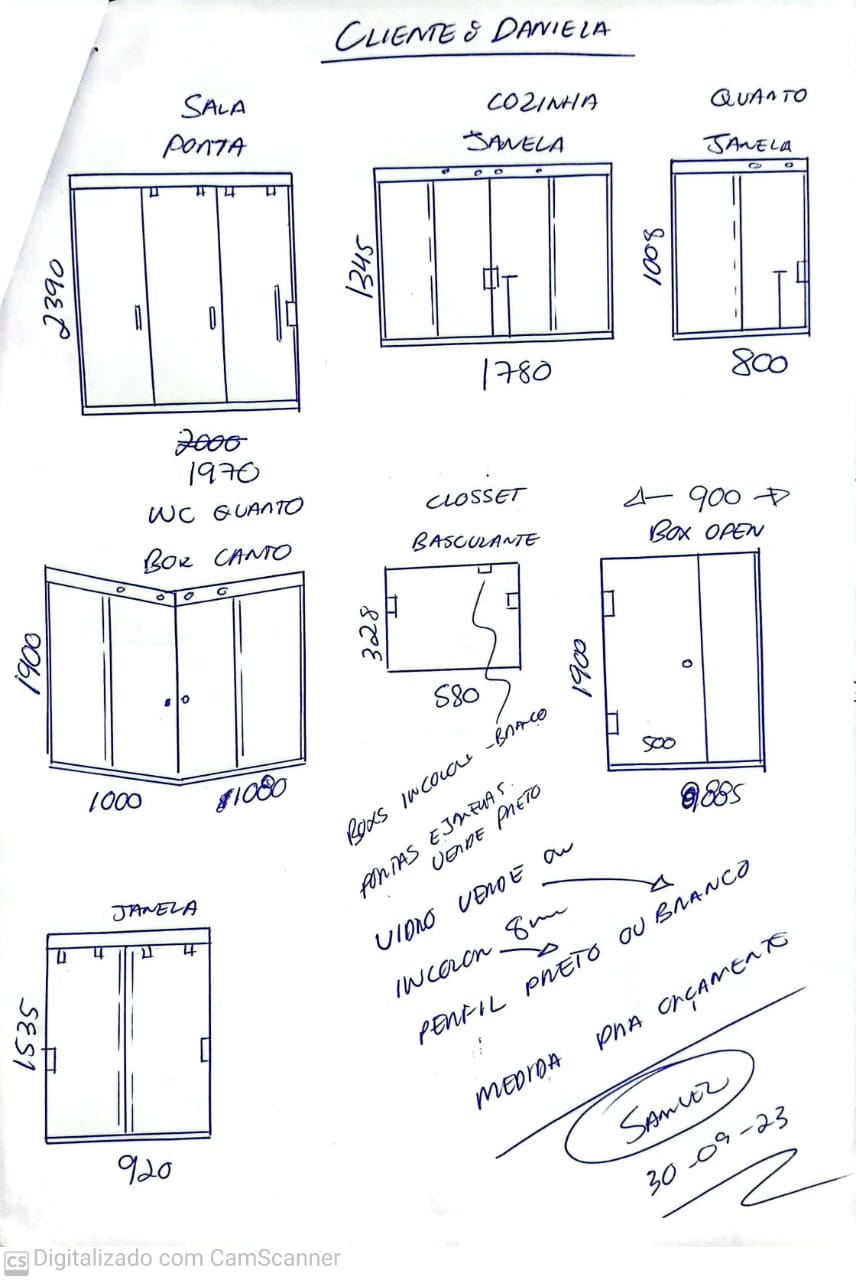 CLIENTE: DANIELA
SALA
PORTA
2390
2000
1970
COZINHA
JANELA
1345
1780
QUARTO
JANELA
1008
800
WC QUARTO
BOX CANTO
1900
1000
1080
CLOSSET
BASCULANTE
328
580
900
BOX OPEN
1900
500
885
BOXS INCOLOR - BRANCO
PORTAS E JANELAS.
VERDE PRETO
VIDRO VERDE OU
INCOLOR 8mm
PERFIL PRETO OU BRANCO
MEDIDA PRA ORÇAMENTO
SAMUEL
30-09-23
JANELA
1535
920
CS Digitalizado com CamScanner